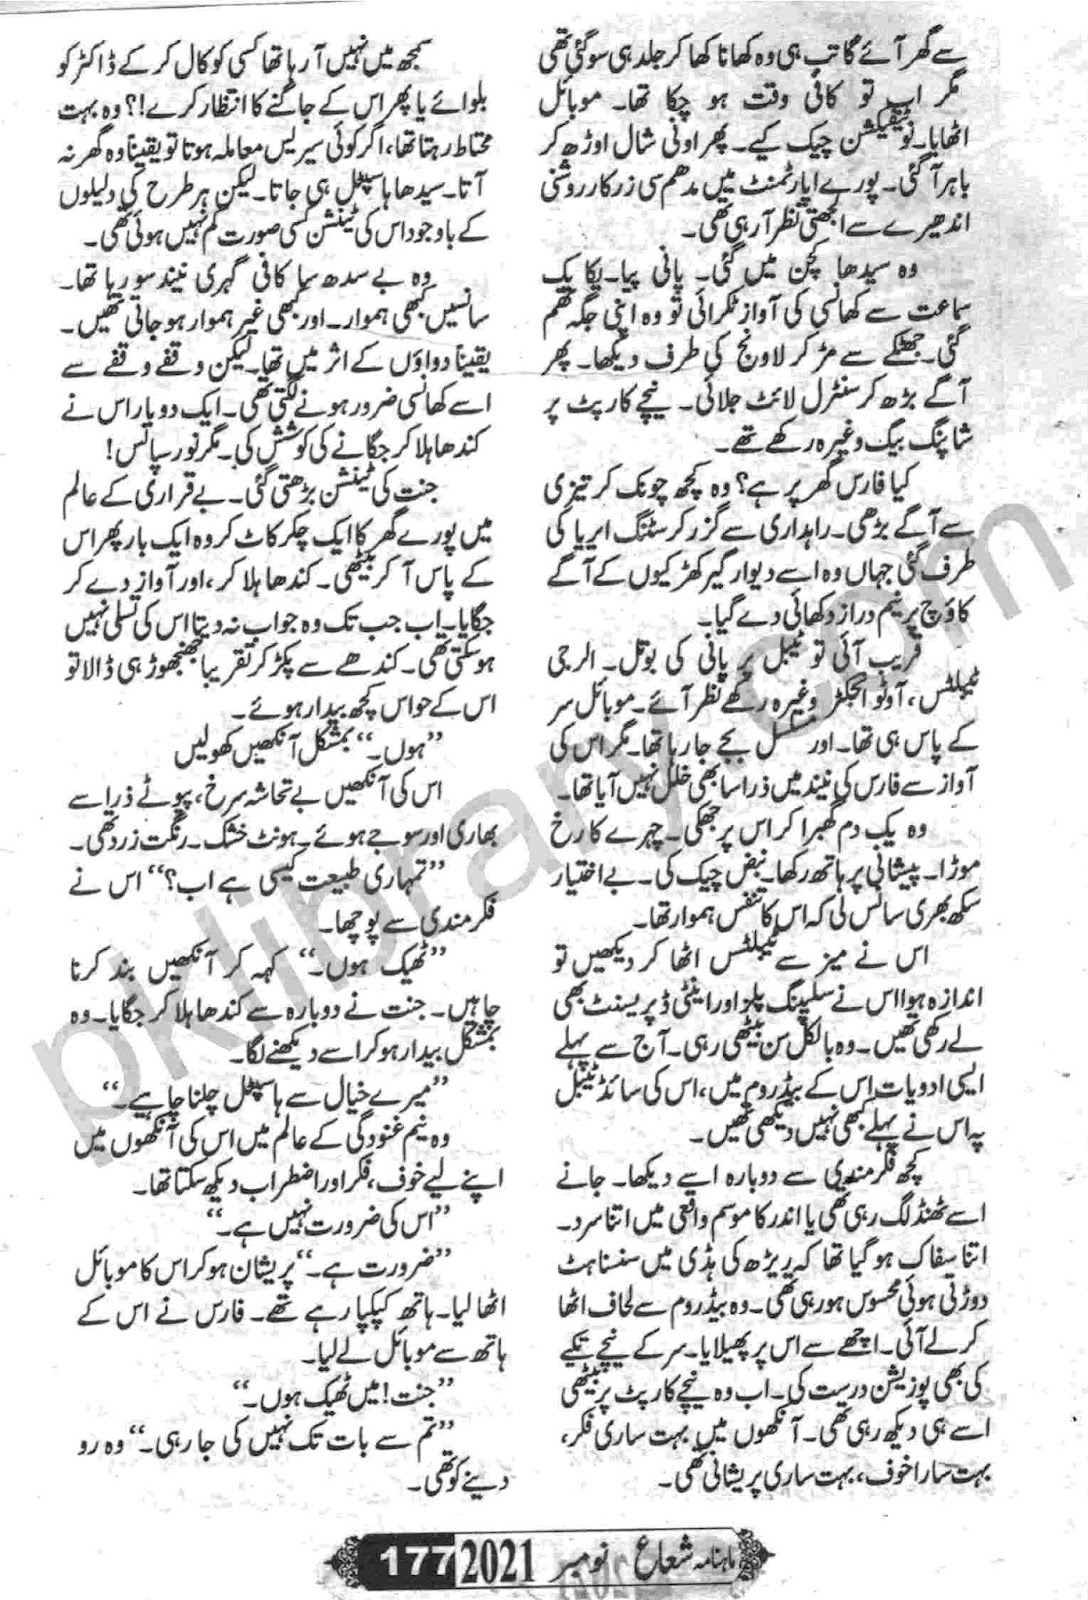 سے گھر آئے گا تب ہی وہ کھانا کھا کر جلد ہی سو گئی تھی
مگر اب تو کافی وقت ہو چکا تھا۔ موبائل
اٹھایا۔ نوٹیفکیشن چیک کیے۔ پھر اونی شال اوڑھ کر
باہر آ گئی۔ پورے اپارٹمنٹ میں مدھم سی زرکار روشنی
اندھیرے سے الجھتی نظر آ رہی تھی۔
وہ سیدھا کچن میں گئی۔ پانی پیا۔ یکایک
سماعت سے کھانسی کی آواز ٹکرائی تو وہ اپنی جگہ تھم
گئی۔ جھٹکے سے مڑ کر لاونج کی طرف دیکھا۔ پھر
آگے بڑھ کر سنٹرل لائٹ جلائی۔ نیچے کارپٹ پر
شاپنگ بیگ وغیرہ رکھے تھے۔
کیا فارس گھر پر ہے؟ وہ کچھ چونک کر تیزی
سے آگے بڑھی۔ راہداری سے گزر کر سٹنگ ایریا کی
طرف گئی جہاں وہ اسے دیوار گیر کھڑکیوں کے آگے
کاؤچ پر نیم دراز دکھائی دے گیا۔
قریب آئی تو ٹیبل پر پانی کی بوتل۔ الرجی
ٹیبلٹس، آٹو انجکٹر وغیرہ رکھے نظر آئے۔ موبائل سر
کے پاس ہی تھا۔ اور مسلسل بجے جا رہا تھا۔ مگر اس کی
آواز سے فارس کی نیند میں ذرا سا بھی خلل نہیں آیا تھا۔
وہ یک دم گھبرا کر اس پر جھکی۔ چہرے کا رخ
موڑا۔ پیشانی پر ہاتھ رکھا۔ نبض چیک کی۔ بے اختیار
سکھ بھری سانس لی کہ اس کا تنفس ہموار تھا۔
اس نے میز سے ٹیبلٹس اٹھا کر دیکھیں تو
اندازہ ہوا اس نے سلیپنگ پلز اور اینٹی ڈپریسنٹ بھی
لے رکھی تھیں۔ وہ بالکل سن بیٹھی رہی۔ آج سے پہلے
ایسی ادویات اس کے بیڈ روم میں، اس کی سائڈ ٹیبل
پہ اس نے پہلے کبھی نہیں دیکھی تھیں۔
کچھ فکرمندی سے دوبارہ اسے دیکھا۔ جانے
اسے ٹھنڈ لگ رہی تھی یا اندر کا موسم واقعی میں اتنا سرد۔
اتنا سفاک ہو گیا تھا کہ ریڑھ کی ہڈی میں سنسناہٹ
دوڑتی ہوئی محسوس ہو رہی تھی۔ وہ بیڈ روم سے لحاف اٹھا
کر لے آئی۔ اچھے سے اس پر پھیلایا۔ سر کے نیچے تکیے
کی بھی پوزیشن درست کی۔ اب وہ نیچے کارپٹ پر بیٹھی
اسے ہی دیکھ رہی تھی۔ آنکھوں میں بہت ساری فکر،
بہت سارا خوف، بہت ساری پریشانی تھی۔
سمجھ میں نہیں آ رہا تھا کسی کو کال کر کے ڈاکٹر کو
بلوائے یا پھر اس کے جاگنے کا انتظار کرے!؟ وہ بہت
محتاط رہتا تھا، اگر کوئی سیریس معاملہ ہوتا تو یقیناً وہ گھر نہ
آتا۔ سیدھا ہاسپٹل ہی جاتا۔ لیکن ہر طرح کی دلیلوں
کے باوجود اس کی ٹینشن کسی صورت کم نہیں ہوئی تھی۔
وہ بے سدھ سا کافی گہری نیند سو رہا تھا۔
سانسیں کبھی ہموار۔ اور کبھی غیر ہموار ہو جاتی تھیں۔
یقیناً دواؤں کے اثر میں تھا۔ لیکن وقفے وقفے سے
اسے کھانسی ضرور ہونے لگتی تھی۔ ایک دو بار اس نے
کندھا ہلا کر جگانے کی کوشش کی۔ مگر نو رسپانس!
جنت کی ٹینشن بڑھتی گئی۔ بے قراری کے عالم
میں پورے گھر کا ایک چکر کاٹ کر وہ ایک بار پھر اس
کے پاس آ کر بیٹھی۔ کندھا ہلا کر، اور آواز دے کر
جگایا۔ اب جب تک وہ جواب نہ دیتا اس کی تسلی نہیں
ہو سکتی تھی۔ کندھے سے پکڑ کر تقریباً جھنجھوڑ ہی ڈالا تو
اس کے حواس کچھ بیدار ہوئے۔
”ہوں۔“ بمشکل آنکھیں کھولیں
اس کی آنکھیں بے تحاشہ سرخ، پپوٹے ذرا سے
بھاری اور سوجے ہوئے۔ ہونٹ خشک۔ رنگت زرد تھی۔
”تمہاری طبیعت کیسی ہے اب؟“ اس نے
فکرمندی سے پوچھا۔
”ٹھیک ہوں۔“ کہہ کر آنکھیں بند کرنا
چاہیں۔ جنت نے دوبارہ سے کندھا ہلا کر جگایا۔ وہ
بمشکل بیدار ہو کر اسے دیکھنے لگا۔
”میرے خیال سے ہاسپٹل چلنا چاہیے۔“
وہ نیم غنودگی کے عالم میں اس کی آنکھوں میں
اپنے لیے خوف، فکر اور اضطراب دیکھ سکتا تھا۔
”اس کی ضرورت نہیں ہے۔“
”ضرورت ہے۔“ پریشان ہو کر اس کا موبائل
اٹھا لیا۔ ہاتھ کپکپا رہے تھے۔ فارس نے اس کے
ہاتھ سے موبائل لے لیا۔
”جنت! میں ٹھیک ہوں۔“
”تم سے بات تک نہیں کی جا رہی۔“ وہ رو
دینے کو تھی۔
ماہنامہ شعاع نومبر 2021 177
pklibrary.com